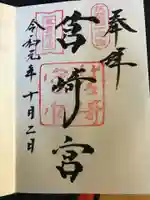 奉拝
筥崎宮
令和元年十月二日